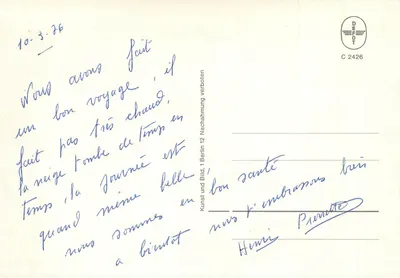 10-3-76
Nous avons fait
un bon voyage, il
fait pas très chaud,
la neige tombe de temps en
temps, la journée est
quand même belle
nous sommes en bon santé
a bientôt nous t'embrassons bien
Henri Pierrette
DEFOT
C 2426
Kunst und Bild, 1 Berlin 12 Nachahmung verboten